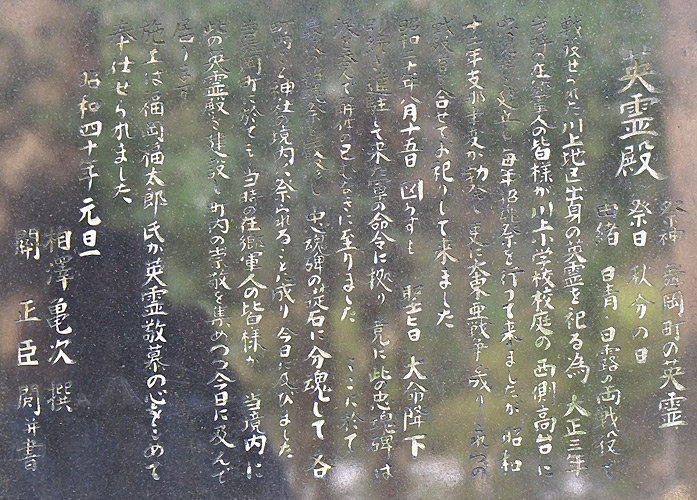 英霊殿
祭神 舞岡町の英霊
祭日 秋分の日
由緒 日清、日露の両戦役で
戦歿せられた川上地区出身の英霊を祀る為、大正三年
在郷軍人の皆様が川上小学校校庭の西側高台に
忠魂碑を建立し毎年招魂祭を行って来ましたが、昭和
十二年支那事変が勃発し更に大東亜戦争と成り
合せてお祀りして来ました
昭和二十年八月十五日 図らずも 聖旨 大命降下
進駐して来た軍の命令に拠り 竟に此の忠魂碑は
止むなきに至りました ここに於て
忠魂碑の礎石に分魂して 各
町内の神社の境内へ祭られることに成り今日に及びました
舞岡町に於ても 当時の在郷軍人の皆様が 当境内に
此の英霊殿を建設し町内の崇敬を集めつつ今日に及んで
居ります
施主は福岡福太郎氏が英霊敬慕の心をこめて
奉仕せられました
昭和四十年元旦
相澤亀次 撰
関正臣 閲并書